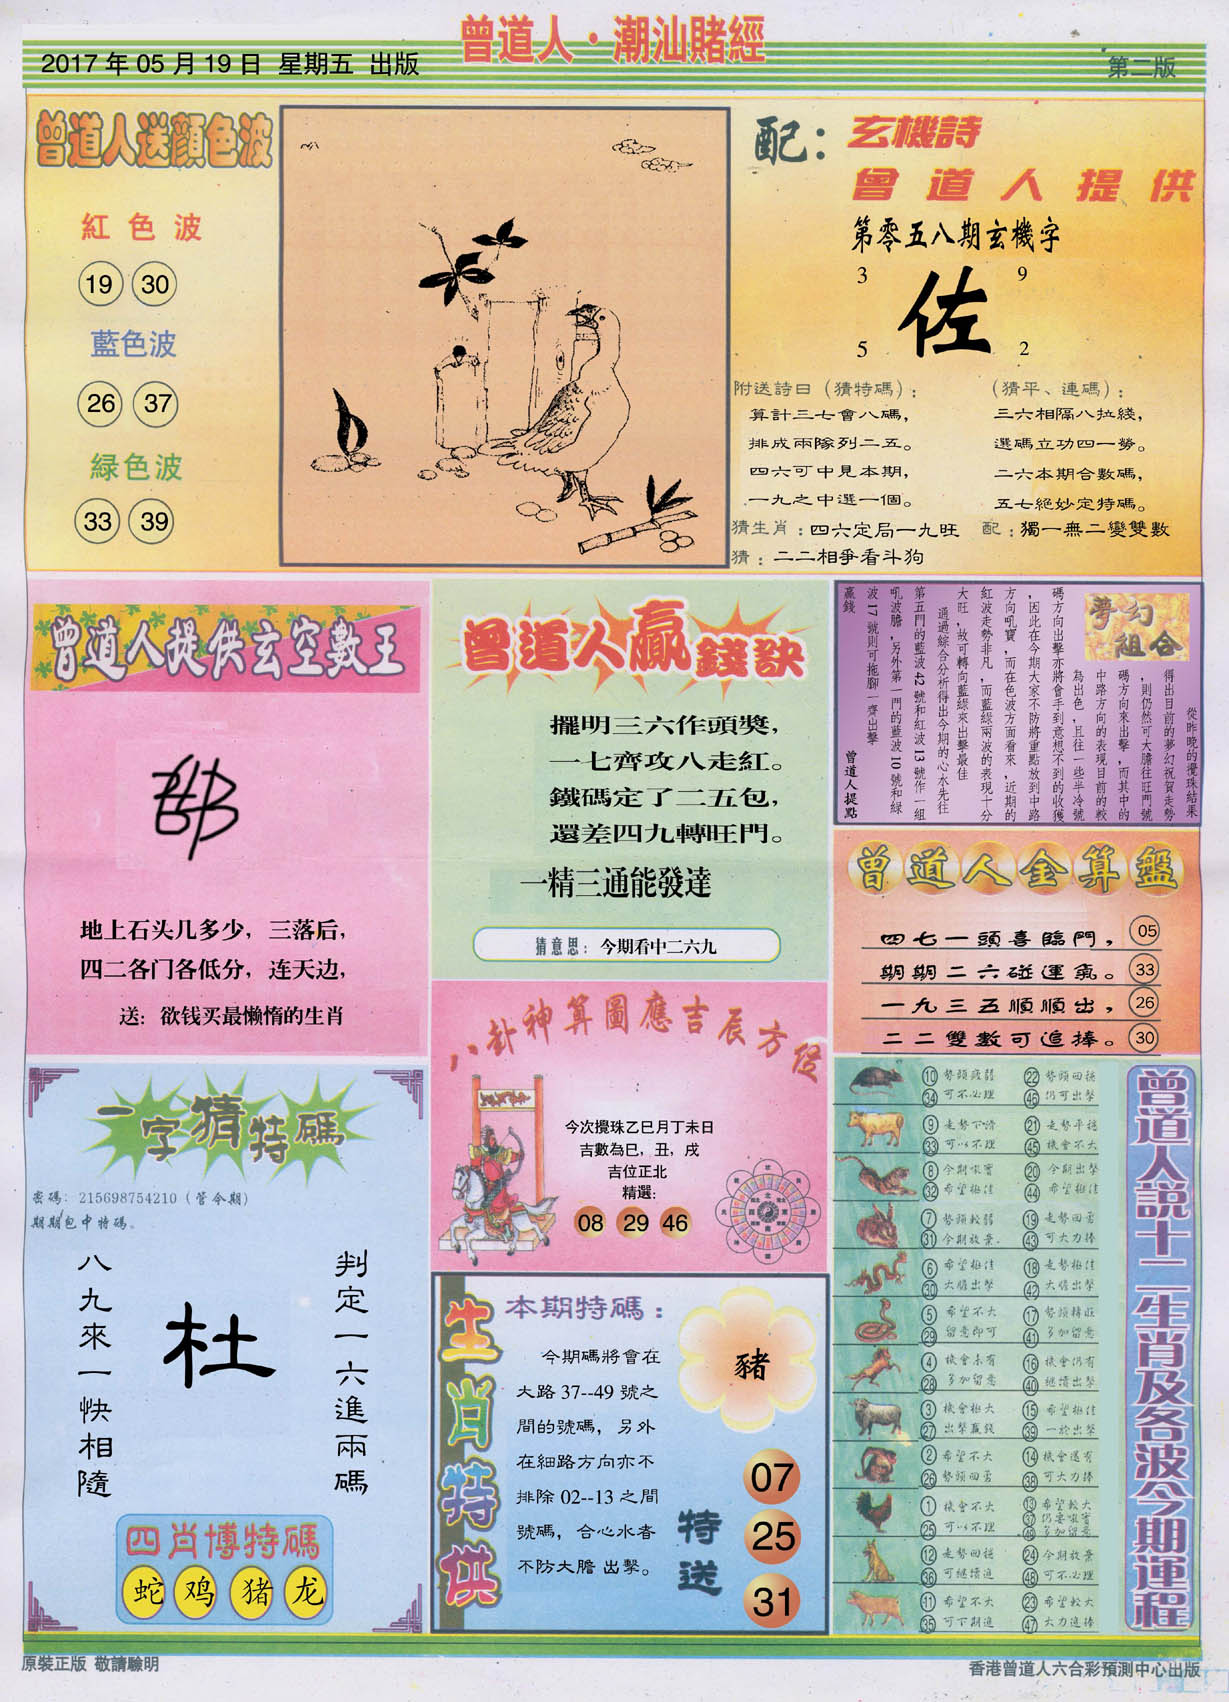 曾道人·潮汕賭經
2017年05月19日 星期五 出版
第二版
曾道人送顏色波
紅色波
19 30
藍色波
26 37
緑色波
33 39
配：玄機詩
曾道人提供
第零五八期玄機字
3 9
佐
5 2
附送詩曰（猜特碼）：
算計三七會八碼，
排成兩隊列二五。
四六可中見本期，
一九之中選一個。
（猜平、連碼）：
三六相隔八拉綫，
選碼立功四一勞。
二六本期合數碼，
五七絕妙定特碼。
猜生肖：四六定局一九旺 配：獨一無二變雙數
猜：二二相爭看斗狗
曾道人提供玄空數王
地上石头几多少，三落后，
四二各门各低分，连天边，
送：欲钱买最懒惰的生肖
曾道人贏錢訣
擺明三六作頭獎，
一七齊攻八走紅。
鐵碼定了二五包，
還差四九轉旺門。
一精三通能發達
猜意思：今期看中二六九
夢幻組合
從昨晚的攪珠結果
得出目前的夢幻祝賀走勢
，則仍然可大膽往旺門號
碼方向來出擊，而其中的
中路方向的表現目前的較
為出色，且往一些半冷號
碼方向出擊亦將會手到意想不到的收獲
，因此在今期大家不防將重點放到中路
方向吼寶，而在色波方面看來，近期的
紅波走勢非凡，而藍綠兩波的表現十分
大旺，故可轉向藍綠來出擊最佳
通過綜合分析得出今期的心水先往
第五門的藍波42號和紅波13號作一組
吼波膽，另外第一門的藍波10號和綠
波17號則可拖腳一齊出擊
贏錢
曾道人提點
曾道人金算盤
四七一頭喜臨門， 05
期期二六碰運氣。 33
一九三五順順出， 26
二二雙數可追捧。 30
八卦神算圖應吉辰方位
今次攪珠乙巳月丁未日
吉數為巳，丑，戌
吉位正北
精選：
08 29 46
一字猜特碼
密碼：215698754210（管令期）
期期包中特碼。
判定一六進兩碼
杜
八九來一快相隨
四肖博特碼
蛇 鸡 猪 龙
生肖特供
本期特碼：
今期碼將會在
大路37--49號之
間的號碼，另外
在細路方向亦不
排除02--13之間
號碼，合心水者
不防大膽出擊。
豬
特送
07
25
31
曾道人說十二生肖及各波今期運程
10 勢頭疲弱 22 勢頭回穩
34 可不必理 46 仍可出擊
9 走勢下滑 21 走勢平穩
33 可以不理 45 機會不大
8 今期吼寶 20 今期出擊
32 希望極佳 44 希望極佳
7 勢頭較弱 19 走勢回勇
31 今期放棄 43 可大力捧
6 希望極佳 18 走勢極佳
30 大膽出擊 42 大膽出擊
5 希望不大 17 勢頭轉旺
29 留意即可 41 多加留意
4 機會未有 16 機會仍有
28 多加留意 40 繼續出擊
3 機會極大 15 希望極佳
27 出擊贏錢 39 一於出擊
2 希望不大 14 機會還有
26 勢頭回勇 38 可大力捧
1 機會不大 13 希望較大
25 可以不理 37 仍要吼實
49 多加留意
12 走勢回穩 24 今期放棄
36 可繼續追 48 可不必理
11 希望不大 23 希望較大
35 可下期進 47 大力追捧
原裝正版 敬請驗明
香港曾道人六合彩預測中心出版